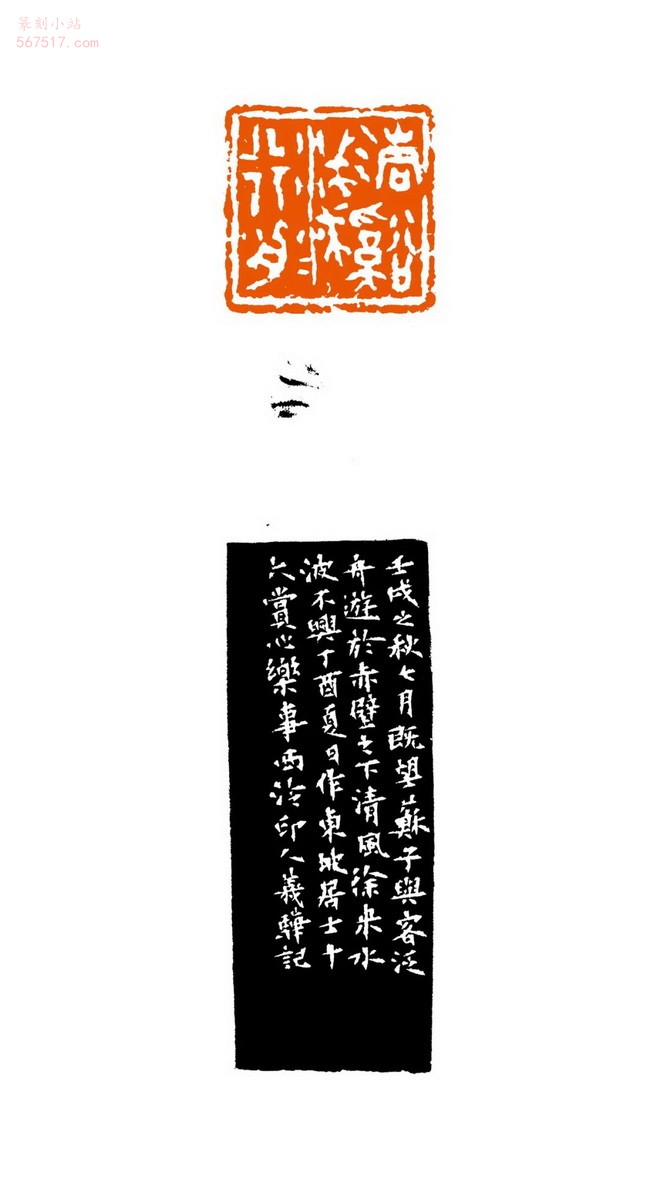 篆刻小站
567517.com
清谿
淺水
行舟
壬戌之秋七月既望蘇子與客泛
舟遊於赤壁之下清風徐来水
波不興丁酉夏日作東坡居士十
六賞心樂事西泠印人義驊記